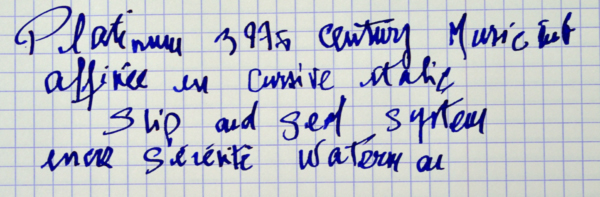 Platinum 3776 century Music nib
affinée en cursive italic
Slip and seal system
encre Sérénité Waterman